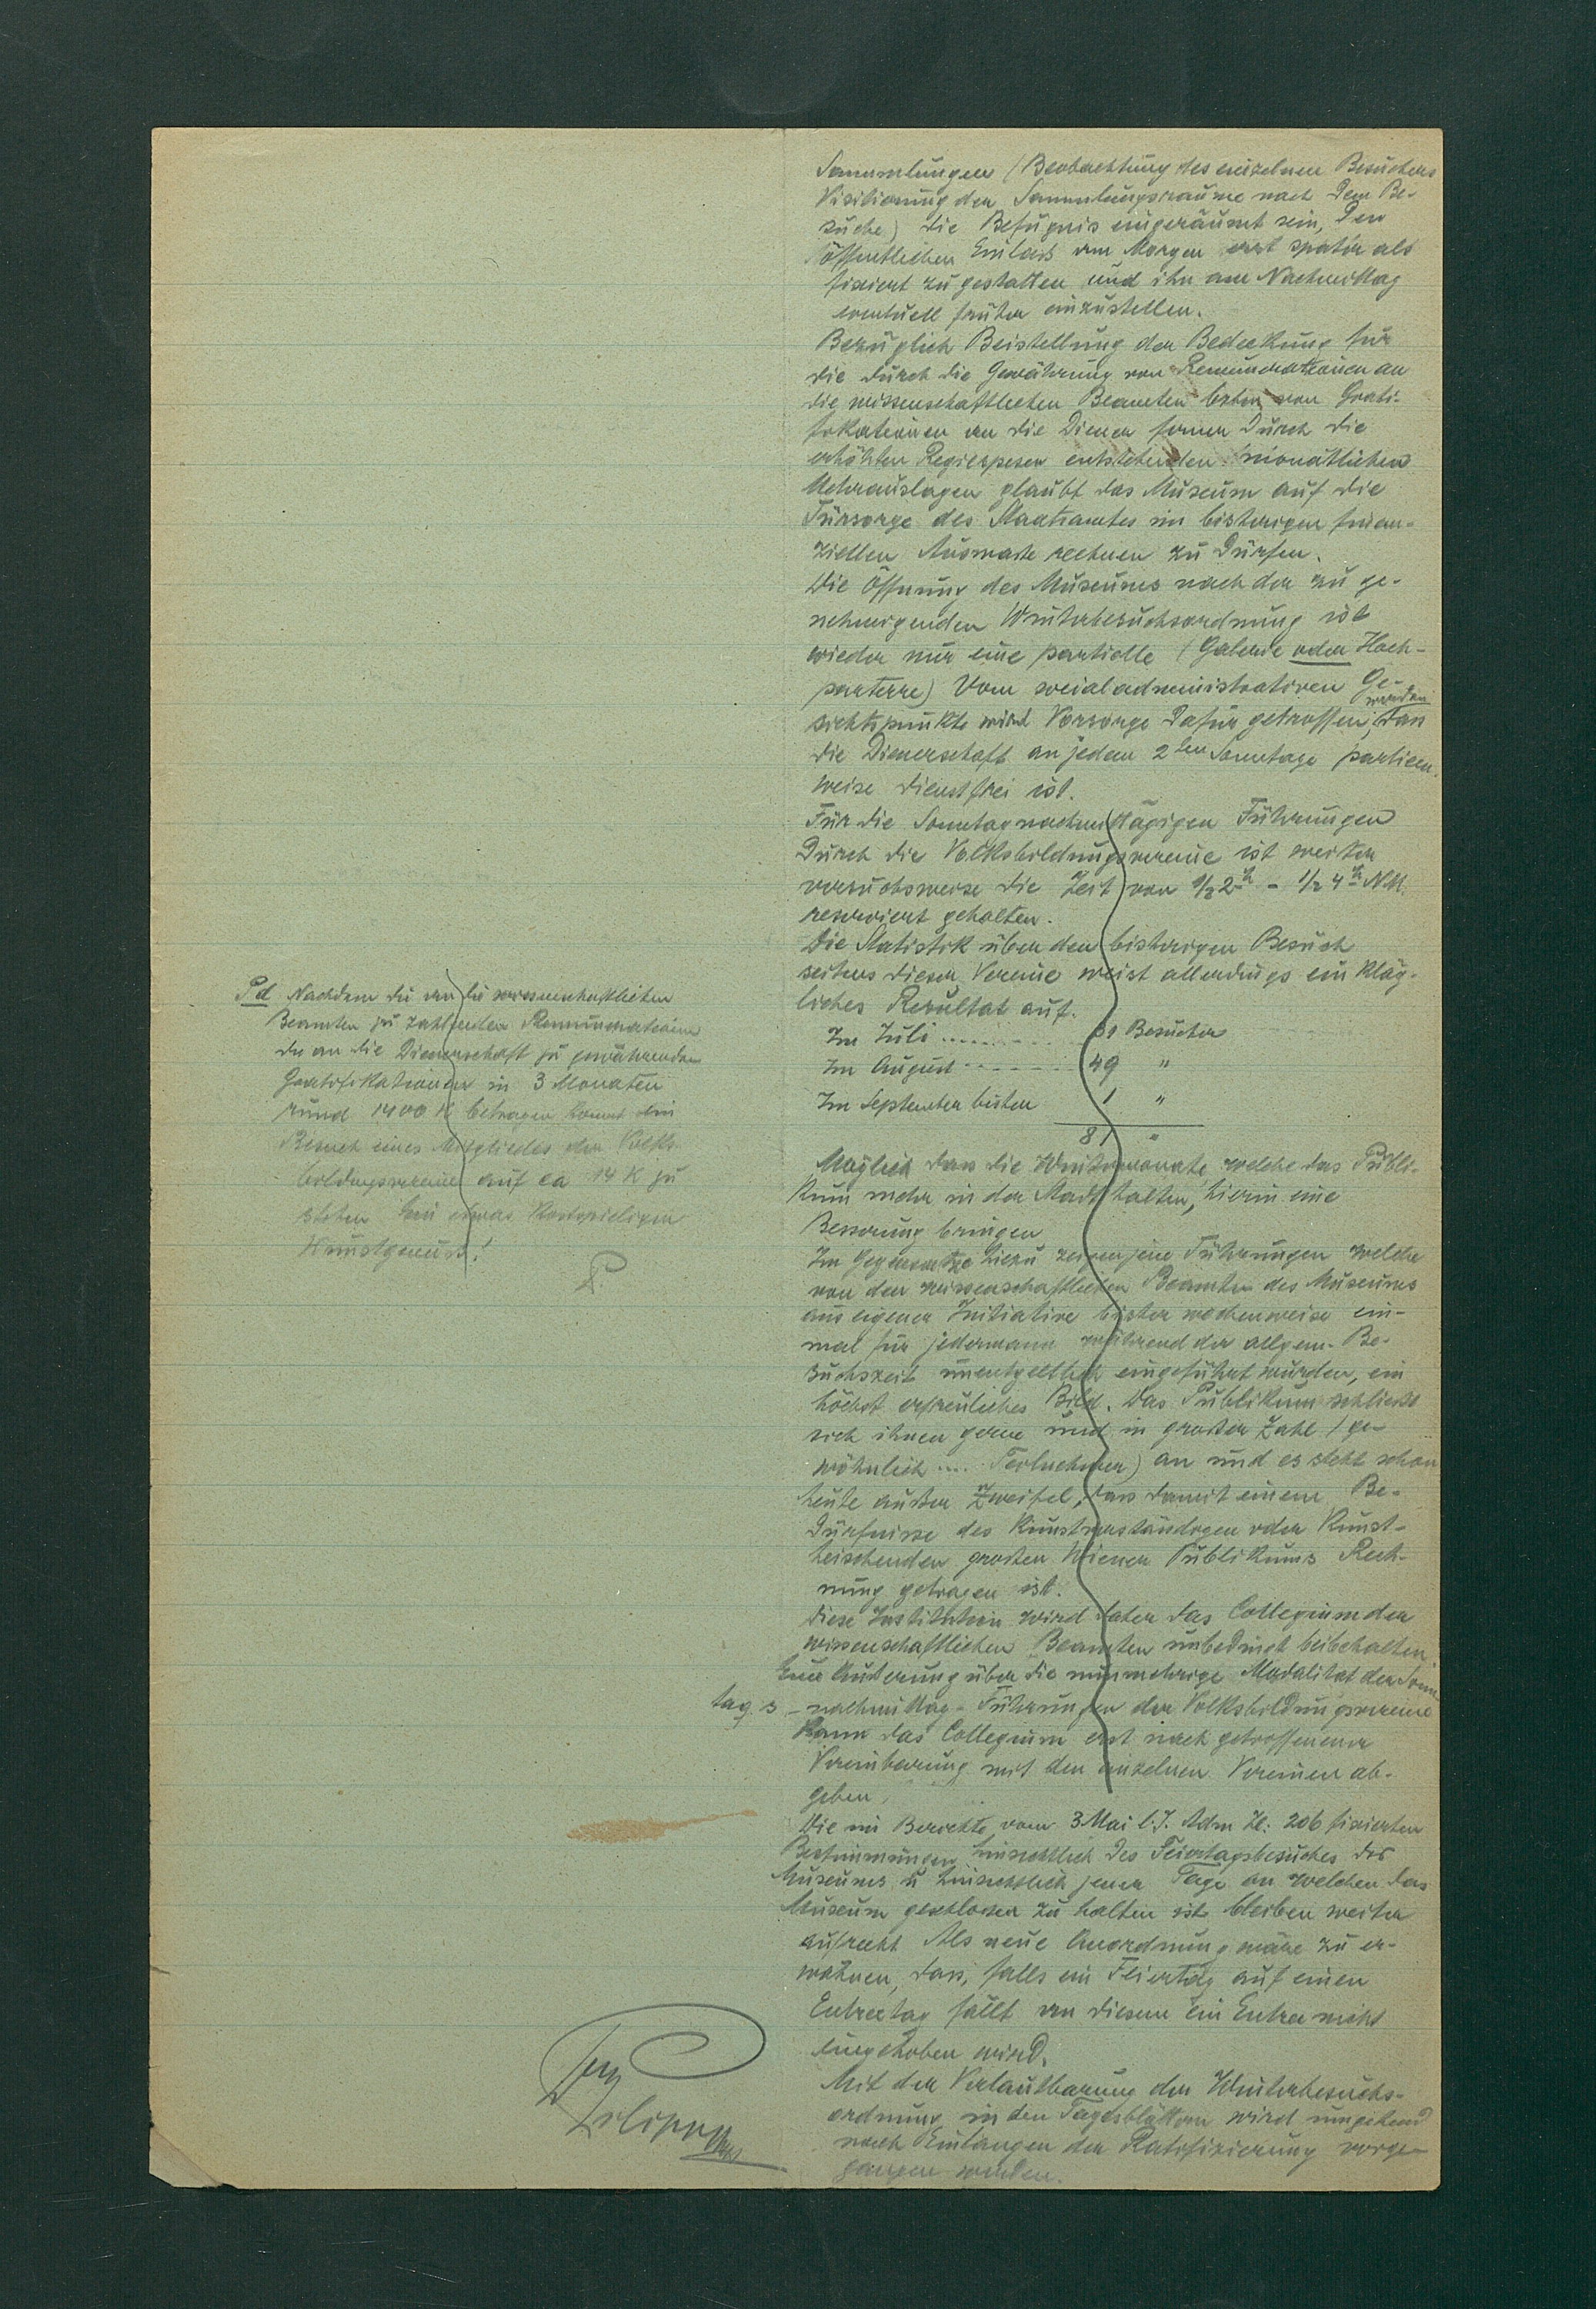 Sammlungen (Beobachtung des einzelnen Besuchers
Visitierung der Sammlungsräume nach dem Be-
suche) die Befugnis eingeräumt sein, den
öffentlichen Einlass am Morgen erst später als
fixiert zu gestatten und ihn am Nachmittag
eventuell früher einzustellen.
Bezüglich Beistellung der Bedeckung für
die durch die Gewährung von Remunerationen an
die wissenschaftlichen Beamten bezw. von Grati-
fikationen an die Diener ferner durch die
erhöhten Regiespesen entstehenden monatlichen
Mehrauslagen glaubt das Museum auf die
Fürsorge des Staatsamtes im bisherigen finan-
ziellen Ausmaße rechnen zu dürfen.
Die Öffnung des Museums nach der zu ge-
nehmigenden Winterbesuchsordnung ist
wieder nur eine partielle (Galerie oder Hoch-
parterre) Vom socialadministrativen Ge-
sichtspunkte wird Vorsorge dafür getroffen werden, dass
die Dienerschaft an jedem 2ten Sonntage partien-
weise dienstfrei ist.
Für die Sonntagnachmittägigen Führungen
durch die Volksbildungsvereine ist weiter
versuchsweise die Zeit von 1/2 2h - 1/2 4h N.M.
reserviert gehalten.
Die Statistik über den bisherigen Besuch
seitens dieser Vereine weist allerdings ein kläg-
liches Resultat auf.
Im Juli .......... 31 Besucher
Im August ------- 49 "
Im September bisher 1 "
81 "
Möglich dass die Wintermonate, welche das Publi-
kum mehr in der Stadt halten, hierin eine
Besserung bringen
Im Gegensatze hiezu zeigen jene Führungen welche
von den wissenschaftlichen Beamten des Museums
aus eigener Initiative bisher wochenweise ein-
mal für jedermann während der allgem. Be-
suchszeit unentgeltlich eingeführt wurden, ein
höchst erfreuliches Bild. Das Publikum schliesst
sich ihnen gerne und in großer Zahl (ge-
wöhnlich .... Teilnehmer) an und es steht schon
heute außer Zweifel, dass damit einem Be-
dürfnisse des kunstverständigen oder Kunst-
heischenden großen Wiener Publikums Rech-
nung getragen ist.
Diese Institution wird daher das Collegium der
wissenschaftlichen Beamten unbedingt beibehalten.
Eine Äußerung über die nunmehrige Modalität der Sonn
tag s - nachmittag - Führungen der Volksbildungsvereine
kann das Collegium erst nach getroffener
Vereinbarung mit den einzelnen Vereinen ab-
geben.
Die im Berichte vom 3. Mai l. J. Adm Zl: 206 fixierten
Bestimmungen hinsichtlich des Feiertagsbesuches des
Museums u hinsichtlich jener Tage an welchen das
Museum geschlossen zu halten ist bleiben weiter
aufrecht. Als neue Anordnung wäre zu er-
wähnen, dass, falls ein Feiertag auf einen
Entreetag fällt an diesem ein Entree nicht
eingehoben wird.
Mit der Verlautbarung der Winterbesuchs-
ordnung in den Tagesblättern wird umgehend
nach Einlangen der Ratifizierung vorge-
gangen werden.
Pd Nachdem die an die wissenschaftlichen
Beamten zu zahlenden Remunerationen
die an die Dienerschaft zu gewährenden
Gratifikationen in 3 Monaten
rund 1400 K betragen kommt ein
Besuch eines Mitgliedes der Volks
bildungsvereine auf ca 14 K zu
stehen. Ein etwas kostspieliger
Kunstgenuss!